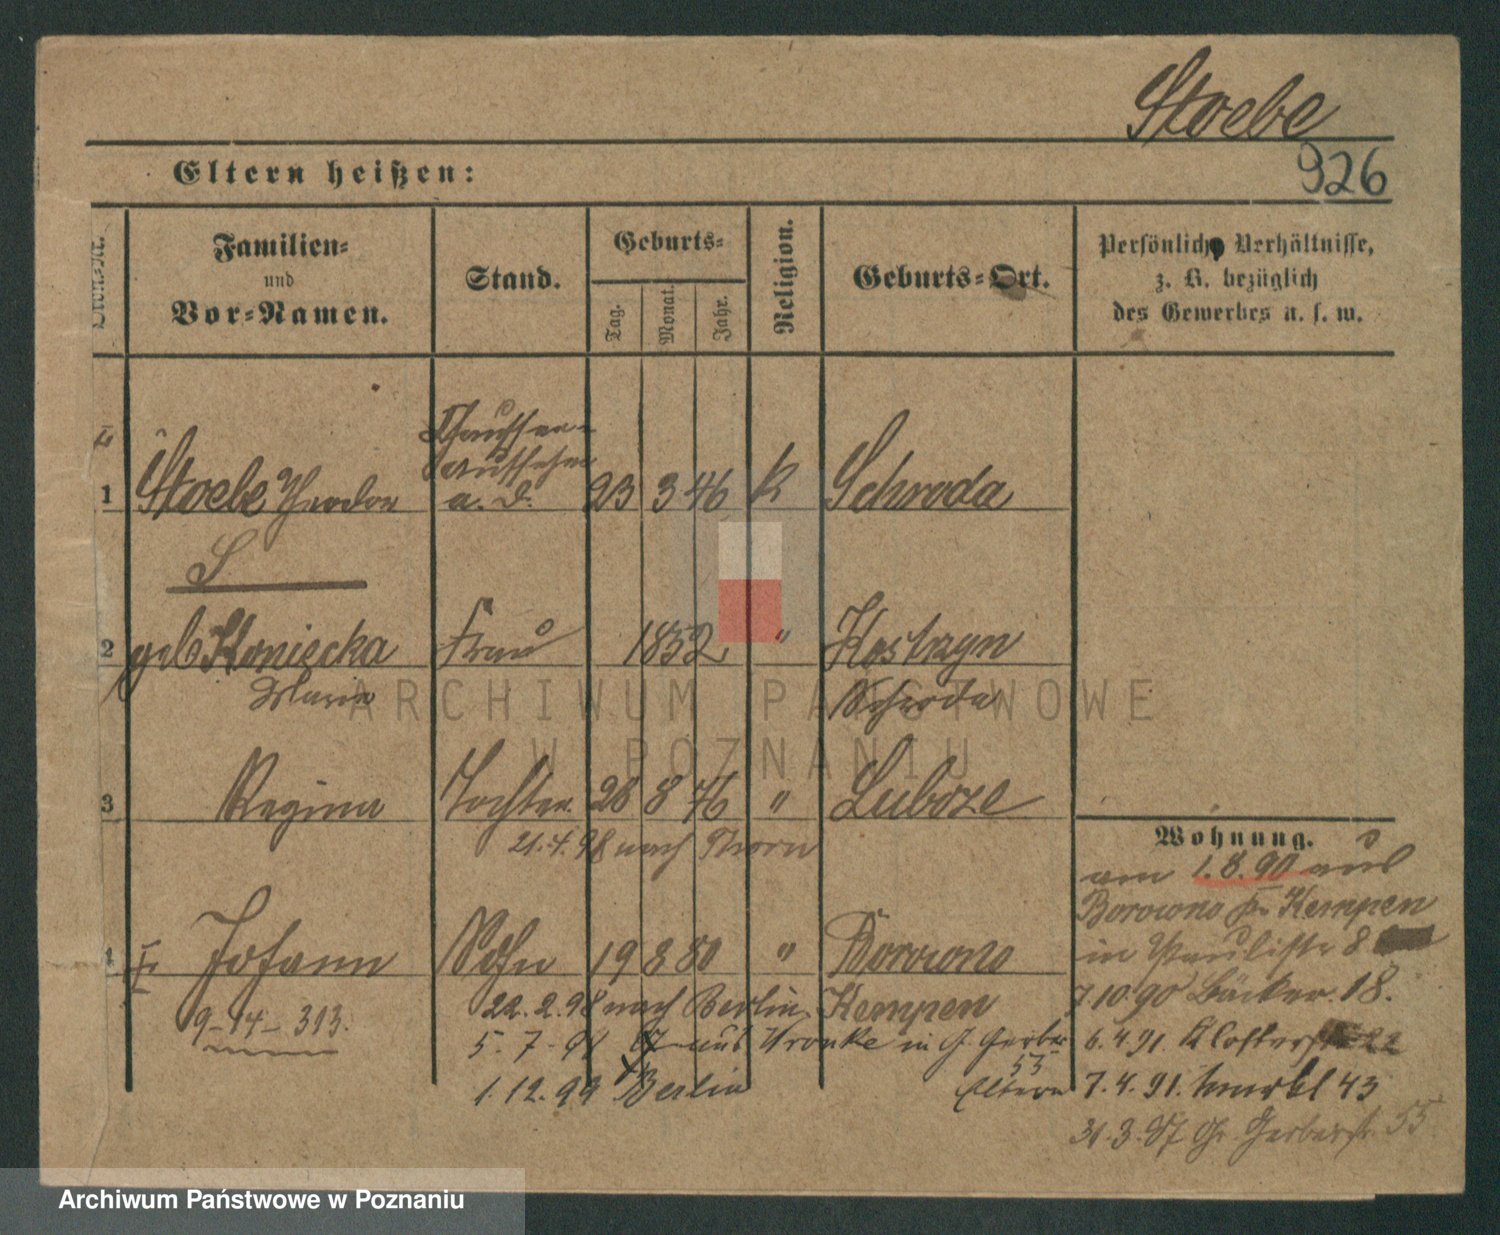 Stoebe
926
Eltern heißen:
Familien=
und
Vor=Namen.
Stand.
Geburts=
Tag.
Monat.
Jahr.
Religion.
Geburts=Ort.
Persönliche Verhältnisse,
z. B. bezüglich
des Gewerbes u. s. w.
Chaussee=
aufseher
1 Stoebe Theodor a. D. 23 3 46 k Schroda
2 geb Koniecka Frau 1852 " Kostrzyn
Maria Schroda
3 Regina Tochter 28 8 76 " Luboze
21.4.98 nach Thorn
Wohnung.
am 1.8.90 aus
Borowno Kr. Kempen
in Paulistr 8
4 Johann Sohn 19 8 80 " Borowno
7.10.90 Bäcker. 18.
9-14-313. 22.2.98 nach Berlin Kempen
5.7.98 aus Wronke in Gr. Gerber
53
6.4.91. Klosterstr 22
1.12.99 Berlin Eltern
7.4.91. 43
31.3.97 Gr. Gerberstr. 55
ARCHIWUM PAŃSTWOWE
W POZNANIU
Archiwum Państwowe w Poznaniu